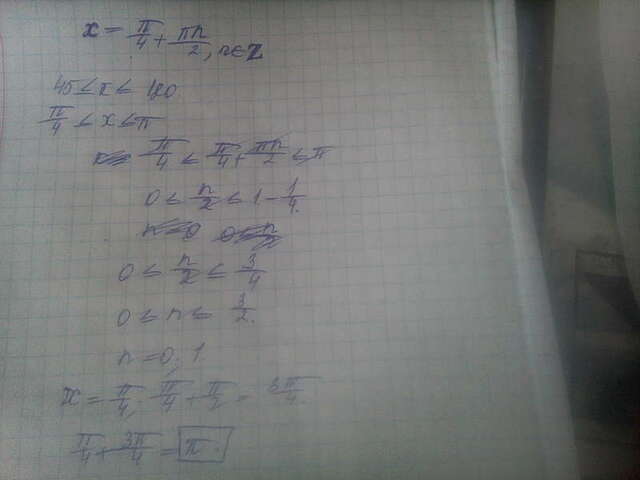 x = π/4 + πn/2, n∈Z
45 ≤ x ≤ 180
π/4 ≤ x ≤ π
π/4 ≤ π/4 + πn/2 ≤ π
0 ≤ n/2 ≤ 1 - 1/4
0 ≤ n/2 ≤ 3/4
0 ≤ n ≤ 3/2.
n = 0; 1
x = π/4, π/4 + π/2 = 3π/4
π/4 + 3π/4 = π.